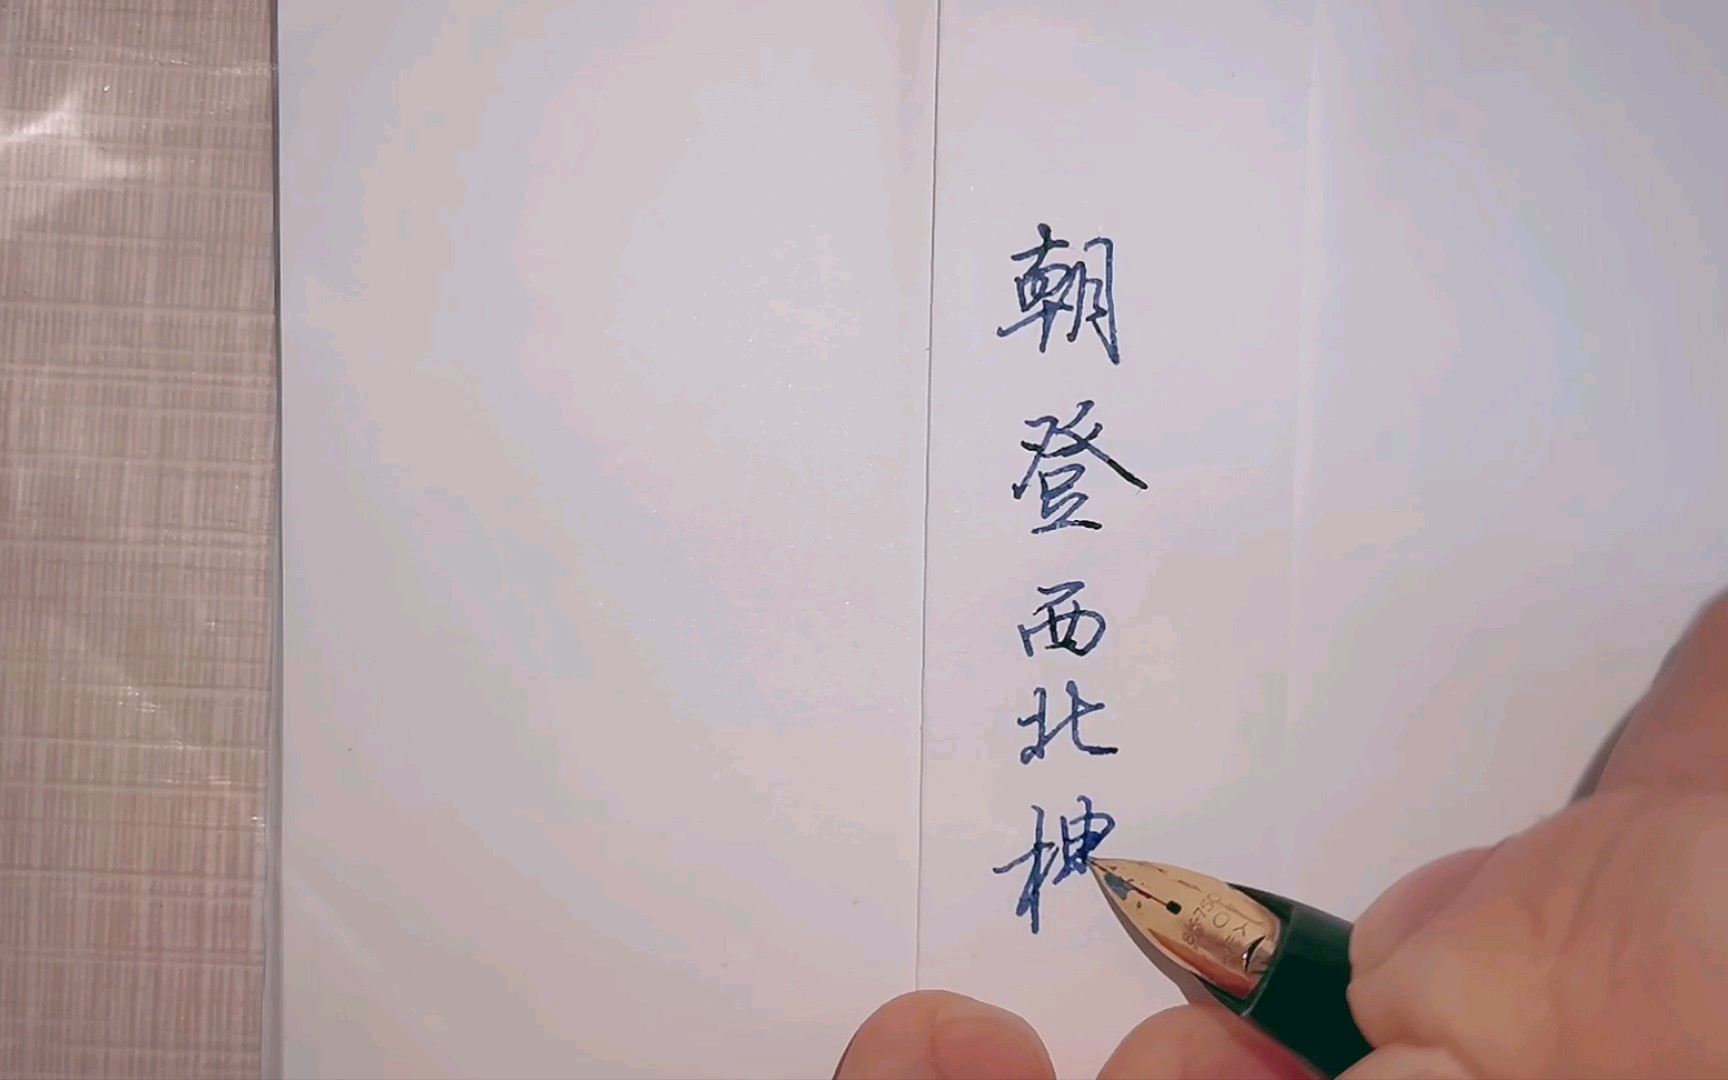 朝登西北